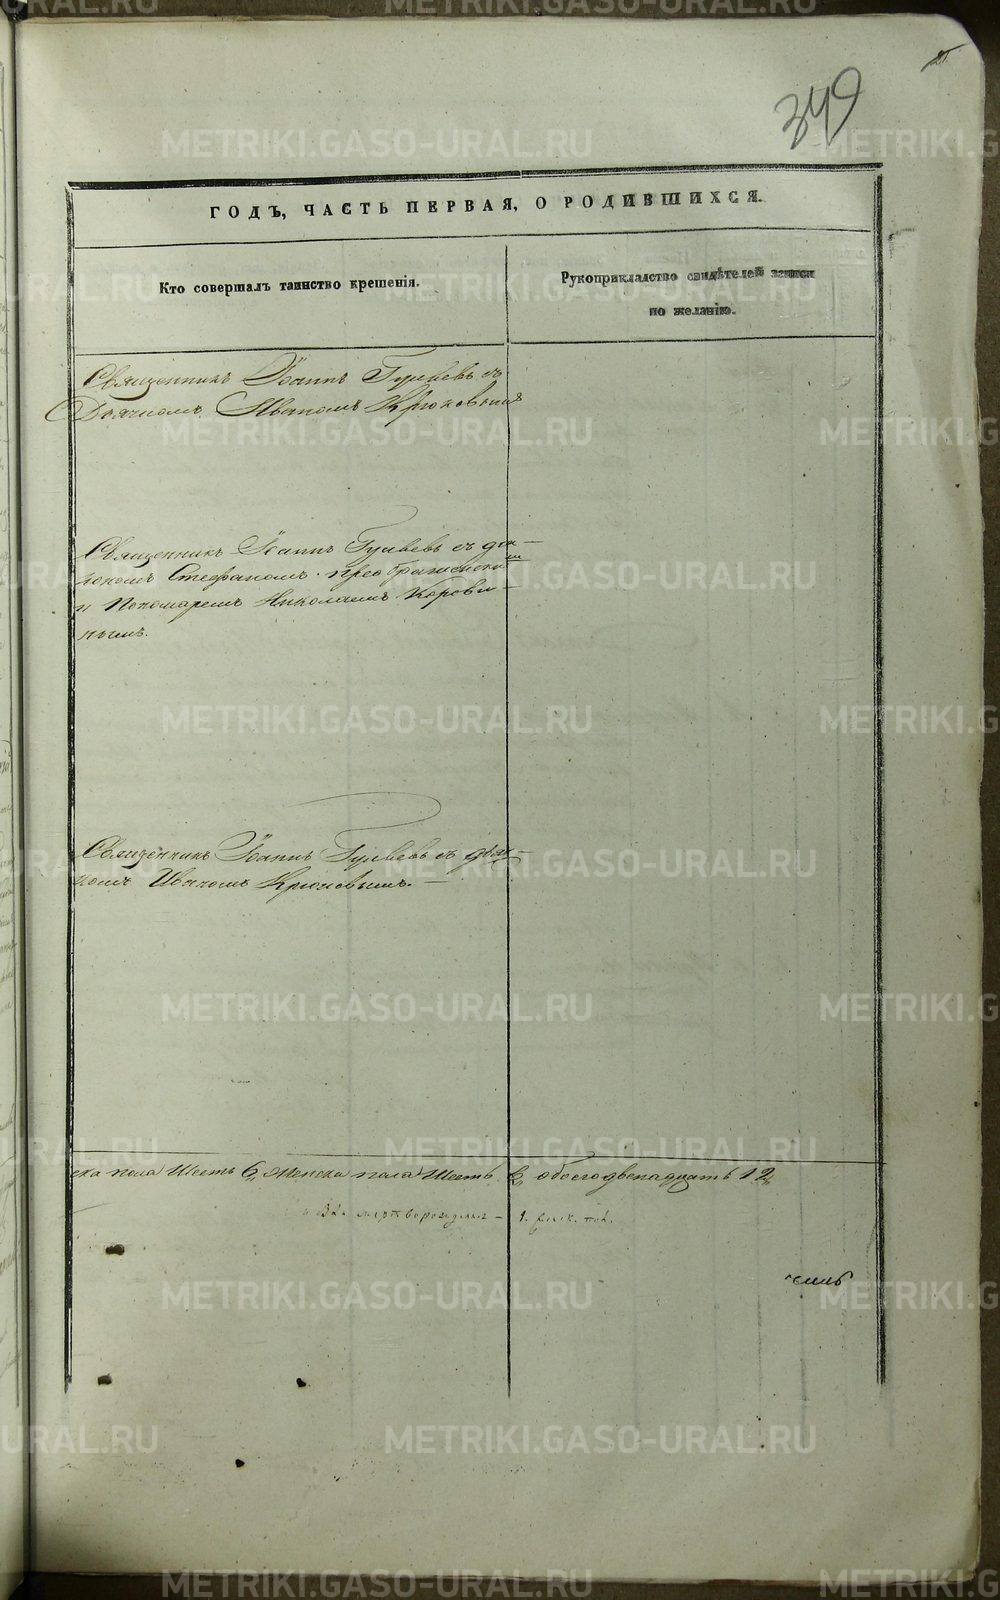 349
ГОДЪ, ЧАСТЬ ПЕРВАЯ, О РОДИВШИХСЯ.
Кто совершалъ таинство крещенія.
Рукоприкладство свидѣтелей записи
по желанію.
Священникъ Іоаннъ Гуляевъ съ
Дьячкомъ Иваномъ Крюковымъ
Священникъ Іоаннъ Гуляевъ съ дья-
кономъ Стефаномъ Преображенскимъ
и Пономаремъ Николаемъ Корови-
нымъ.
Священникъ Іоаннъ Гуляевъ съ дьяч-
комъ Иваномъ Крюковымъ.
ска пола Шесть 6, Женска пола Шесть 6, обоего двенадцать 12,
мертворожден - 1. женск. пол.
METRIKI.GASO-URAL.RU